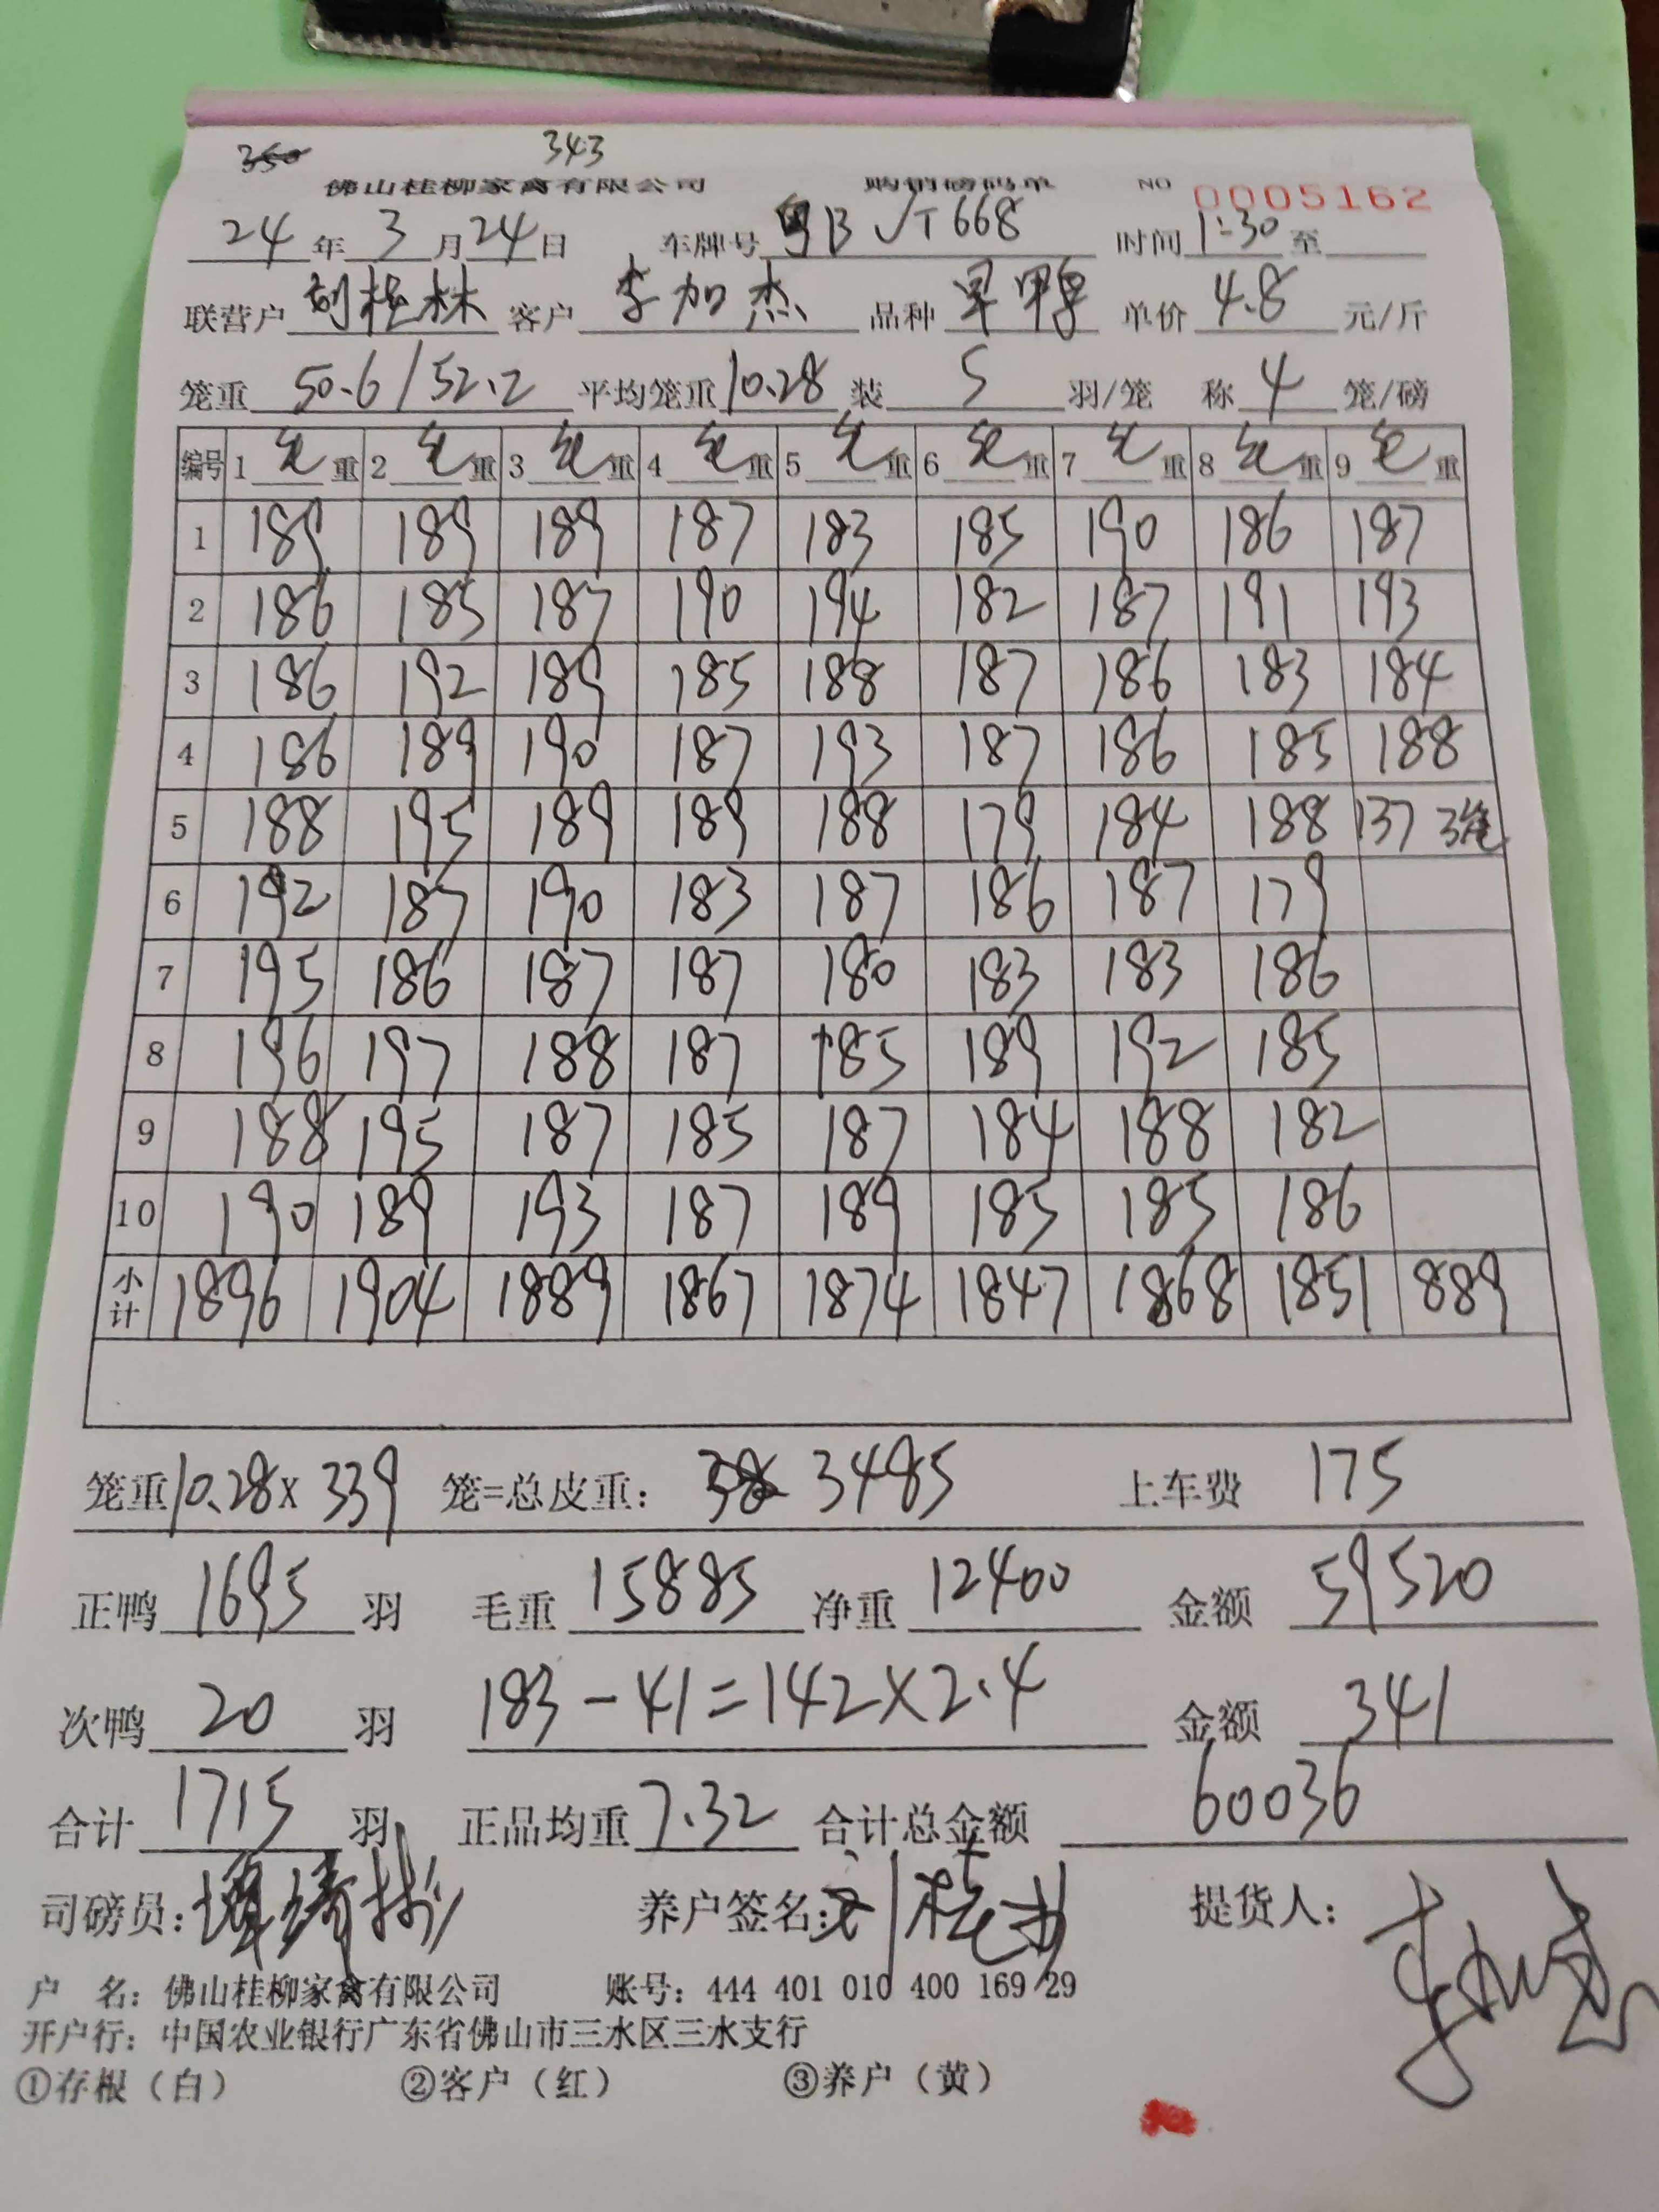 350 343
佛山桂柳家禽有限公司 购销磅码单 NO 0005162
24年3月24日 车牌号 粤B JT668 时间 1:30 至
联营户 刘桂林 客户 李加杰 品种 早鸭 单价 4.8 元/斤
笼重 50.6/52.2 平均笼重 10.28 装 5 羽/笼 称 4 笼/磅
编号 1 毛重 2 毛重 3 毛重 4 毛重 5 毛重 6 毛重 7 毛重 8 毛重 9 毛重
1 189 189 189 187 183 185 190 186 187
2 186 185 187 190 194 182 187 191 193
3 186 192 189 185 188 187 186 183 184
4 186 189 190 187 193 187 186 185 188
5 188 195 189 189 188 179 184 188 137 3笼
6 192 187 190 183 187 186 187 179
7 195 186 187 187 180 183 183 186
8 196 197 188 187 185 189 192 185
9 188 195 187 185 187 184 188 182
10 190 189 193 187 189 185 185 186
小计 1896 1904 1889 1867 1874 1847 1868 1851 889
笼重 10.28 x 339 笼=总皮重: 38 3485 上车费 175
正鸭 1695 羽 毛重 15885 净重 12400 金额 59520
次鸭 20 羽 183-41=142×2.4 金额 341
合计 1715 羽 正品均重 7.32 合计总金额 60036
司磅员: 养户签名: 刘桂 提货人:
户 名: 佛山桂柳家禽有限公司 账号: 444 401 010 400 169 29
开户行: 中国农业银行广东省佛山市三水区三水支行
①存根(白) ②客户(红) ③养户(黄)